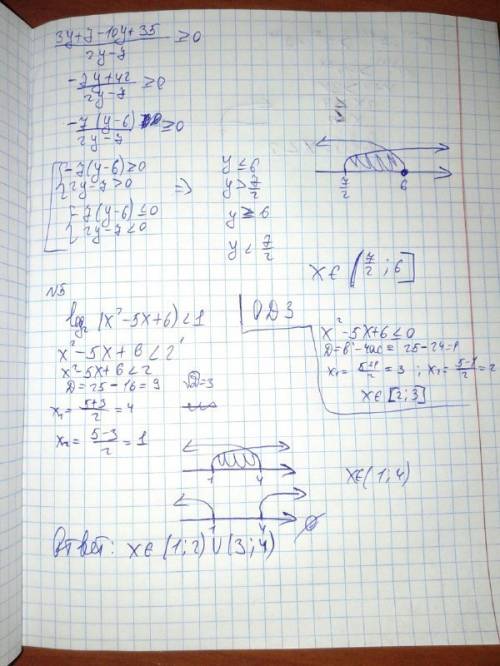 3y+7-10y+35 / 2y-7 ≥0
-7y+42 / 2y-7 ≥0
-7(y-6) / 2y-7 ≥0
-7(y-6)≥0 => y≤6
2y-7>0 y>7/2
-7(y-6)≤0 y≥6
2y-7<0 y<7/2
7/2 6
x∈(7/2;6]
N5
log₂(x²-5x+6)<1
ОДЗ
x²-5x+6<2¹
x²-5x+6<2
D=25-16=9 √D=3
x₁=5+3/2=4
x₂=5-3/2=1
x²-5x+6≤0
D=b²-4ac=25-24=1
x₁=5+1/2=3; x₂=5-1/2=2
x∈[2;3]
1 4
x∈(1;4)
1 4
Ответ: x∈(1;2)∪(3;4)